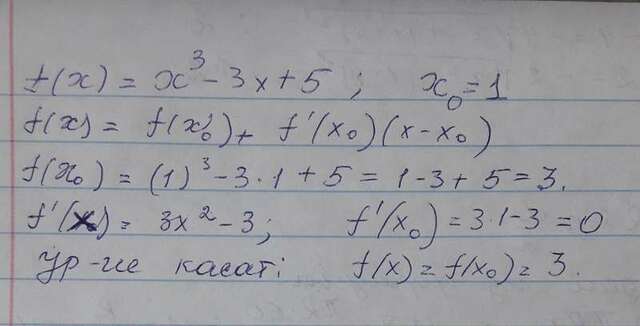 f(x) = x³ - 3x + 5; x₀ = 1
f(x) = f(x₀) + f'(x₀)(x - x₀)
f(x₀) = (1)³ - 3·1 + 5 = 1 - 3 + 5 = 3.
f'(x) = 3x² - 3; f'(x₀) = 3·1 - 3 = 0
Ур-ие касат: f(x) = f(x₀) = 3.